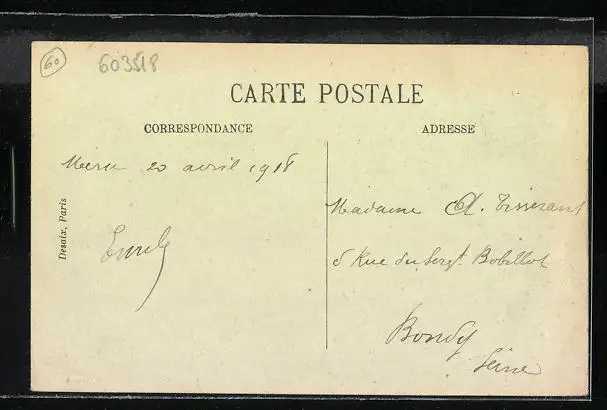 60
603518
CARTE POSTALE
CORRESPONDANCE
ADRESSE
Meru 20 avril 1918
Desaix, Paris
Madame A. Tisserant
5 Rue du Sergt Bobillot
Bondy
Seine